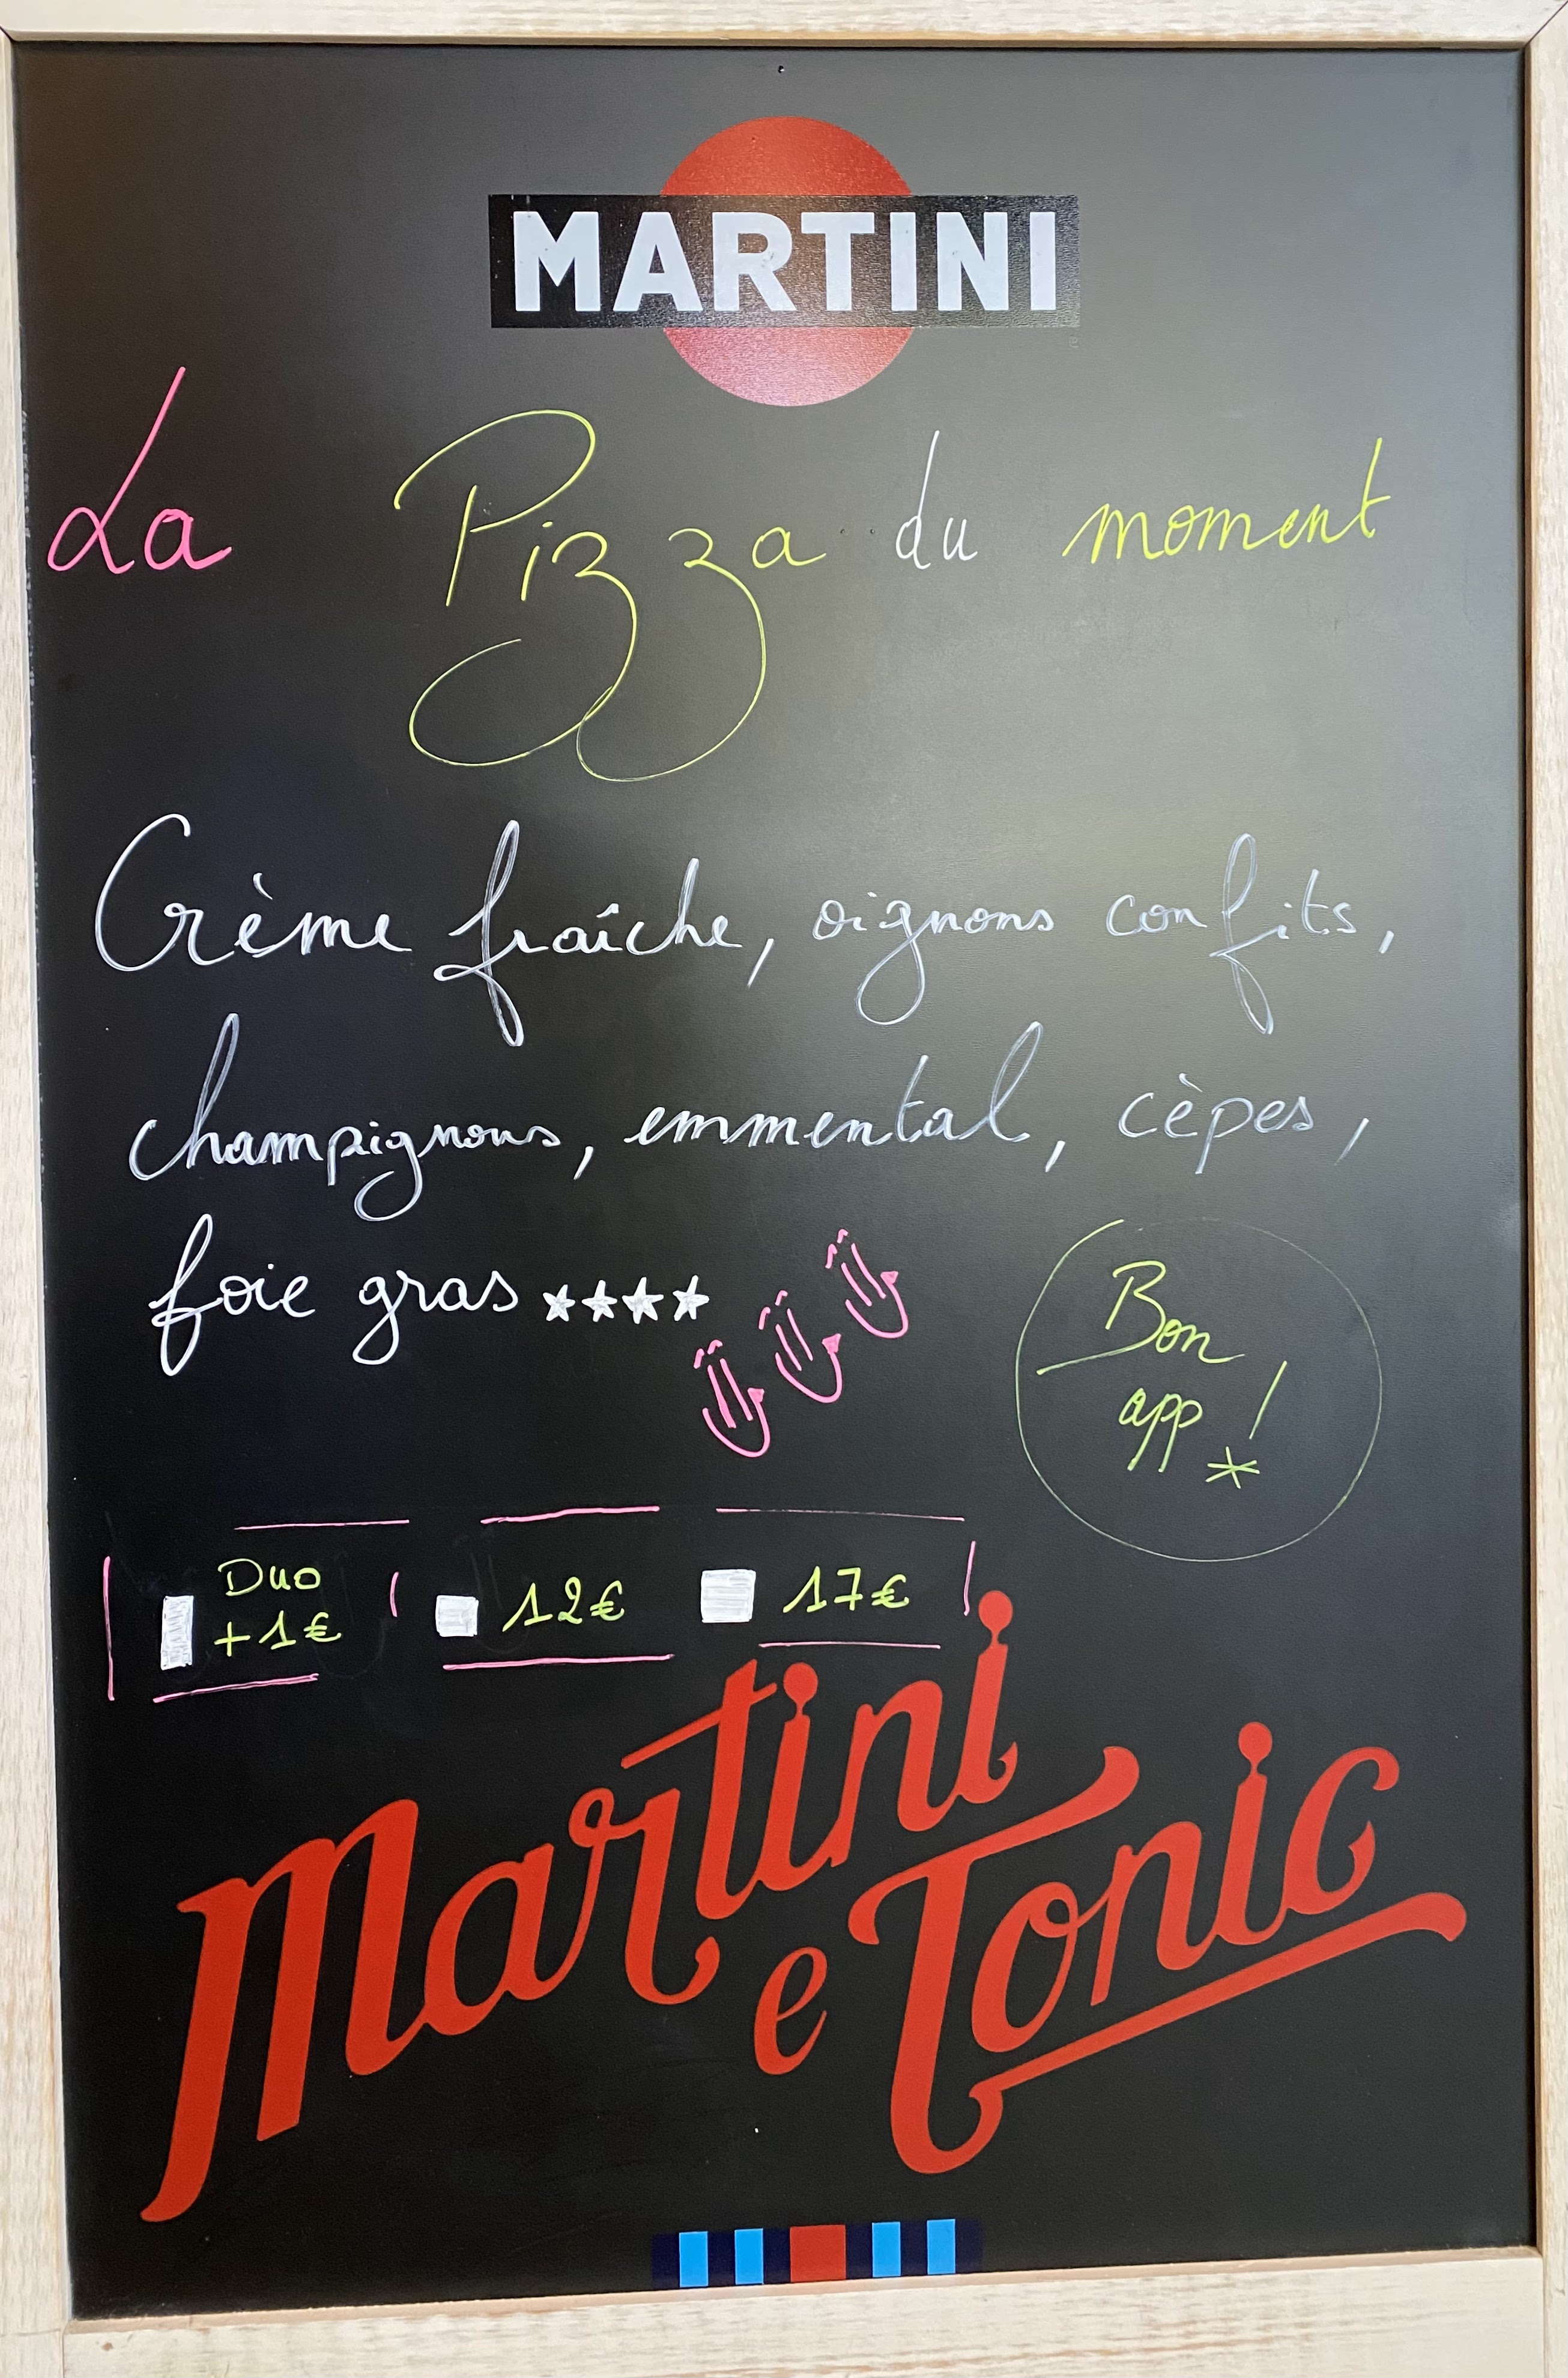 MARTINI
La Pizza du moment
Crème fraîche, oignons confits,
champignons, emmental, cèpes,
foie gras ★★★★
Bon
app!
Duo
+1€
12€
17€
Martini
e Tonic